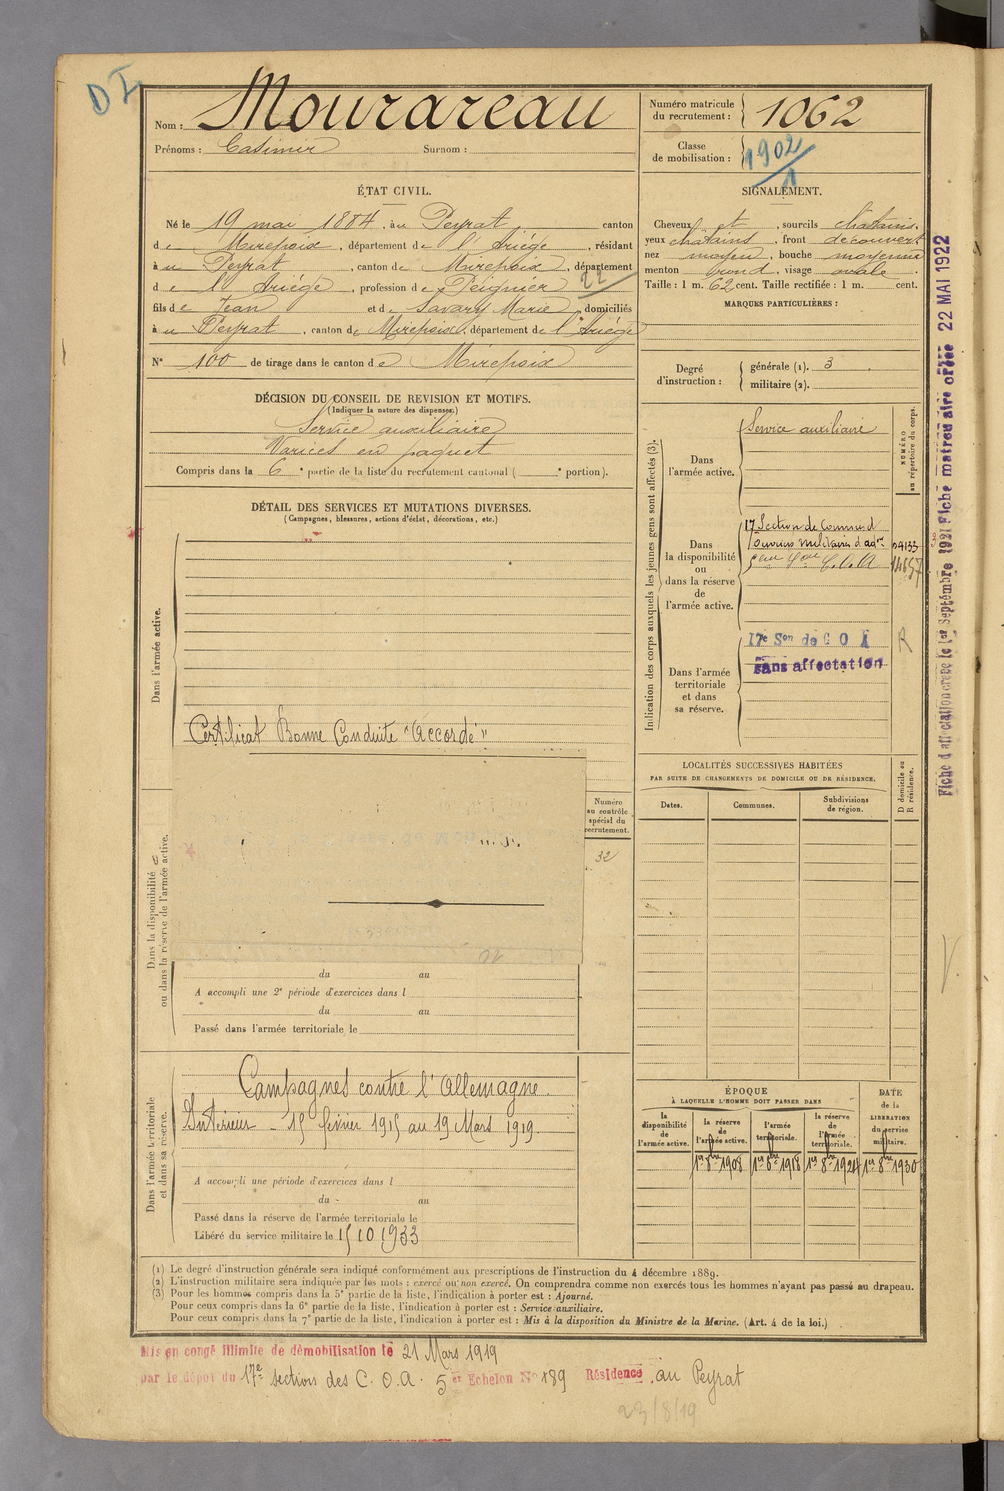 D I
Nom : Mourareau
Prénoms : Casimir Surnom :
Numéro matricule du recrutement : 1062
Classe de mobilisation : 1902
1
ÉTAT CIVIL.
Né le 19 mai 1884, à u Peyrat canton
de Mirepoix, département de l'Ariège, résidant
à u Peyrat, canton de Mirepoix, département
de l'Ariège, profession de Peignier 22
fils de Jean et de Savary Marie, domiciliés
à u Peyrat, canton de Mirepoix, département de l'Ariège
N° 100 de tirage dans le canton de Mirepoix
SIGNALEMENT.
Cheveux et, sourcils chatains,
yeux chatains, front découvert
nez moyen, bouche moyenne
menton rond, visage ovale.
Taille : 1 m. 62 cent. Taille rectifiée : 1 m. cent.
MARQUES PARTICULIÈRES :
Degré d'instruction : générale (1). 3.
militaire (2).
DÉCISION DU CONSEIL DE REVISION ET MOTIFS.
(Indiquer la nature des dispenses.)
Service auxiliaire
Varices en paquet
Compris dans la 6e partie de la liste du recrutement cantonal ( e portion).
DÉTAIL DES SERVICES ET MUTATIONS DIVERSES.
(Campagnes, blessures, actions d'éclat, décorations, etc.)
Dans l'armée active.
Certificat Bonne Conduite "accordé"
Indication des corps auxquels les jeunes gens sont affectés (3).
NUMÉRO au répertoire du corps.
Dans l'armée active.
Service auxiliaire
Dans la disponibilité ou dans la réserve de l'armée active.
17 Section de Commis d
Ouvriers militaires d'adm.
C.O.A
Dans l'armée territoriale et dans sa réserve.
17e Son de C O A
sans affectation
R
Fiche d'affectation créée le 1er Septembre 1921 Fiche matriculaire créée 22 MAI 1922
LOCALITÉS SUCCESSIVES HABITÉES
PAR SUITE DE CHANGEMENTS DE DOMICILE OU DE RÉSIDENCE.
D domicile ou R résidence.
Dates. Communes. Subdivisions de région.
Numéro au contrôle spécial du recrutement.
32
Dans la disponibilité ou dans la réserve de l'armée active.
du au
A accompli une 2e période d'exercices dans l
du au
Passé dans l'armée territoriale le
Dans l'armée territoriale et dans sa réserve.
Campagnes contre l'Allemagne.
Intérieur - 15 février 1915 au 19 Mars 1919.
A accompli une période d'exercices dans l
du au
Passé dans la réserve de l'armée territoriale le
Libéré du service militaire le 15 10 1933
ÉPOQUE
À LAQUELLE L'HOMME DOIT PASSER DANS
DATE de la LIBÉRATION du service militaire.
la disponibilité de l'armée active.
la réserve de l'armée active.
l'armée territoriale.
la réserve de l'armée territoriale.
1er 8bre 1908 1er 8bre 1918 1er 8bre 1924 1er 8bre 1930
(1) Le degré d'instruction générale sera indiqué conformément aux prescriptions de l'instruction du 4 décembre 1889.
(2) L'instruction militaire sera indiquée par les mots : exercé ou non exercé. On comprendra comme non exercés tous les hommes n'ayant pas passé au drapeau.
(3) Pour les hommes compris dans la 5e partie de la liste, l'indication à porter est : Ajourné.
Pour ceux compris dans la 6e partie de la liste, l'indication à porter est : Service auxiliaire.
Pour ceux compris dans la 7e partie de la liste, l'indication à porter est : Mis à la disposition du Ministre de la Marine. (Art. 4 de la loi.)
Mis en congé illimité de démobilisation le 21 Mars 1919
par le dépôt du 17e section des C. O. A. 5 er Echelon N° 189 Résidence au Peyrat
23/8/19